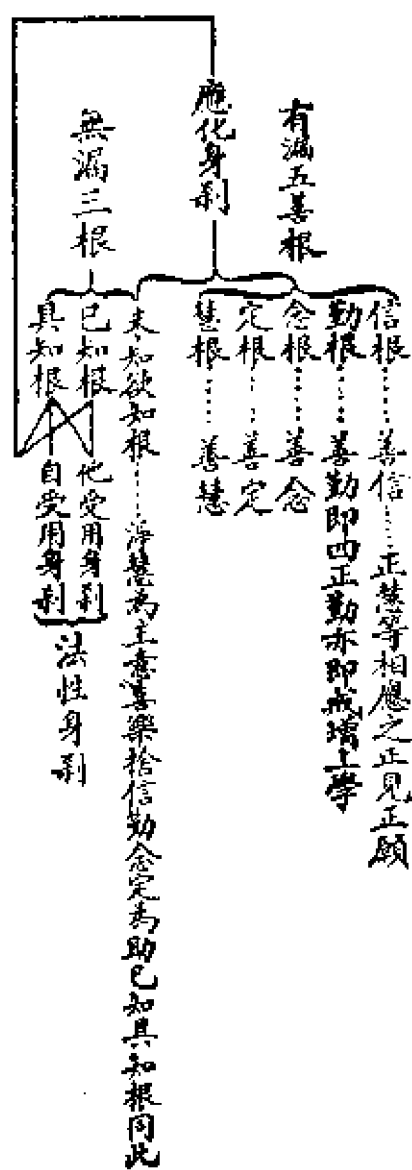 有漏五善根
信根……善信……正慧等相應之正見正願
勤根……善勤即四正勤亦即戒增上學
念根……善念
定根……善定
慧根……善慧
應化身剎
無漏三根
未知欲知根……淨慧為主意喜樂捨信勤念定為助已知具知根同此
已知根
具知根
他受用身剎
自受用身剎
法性身剎